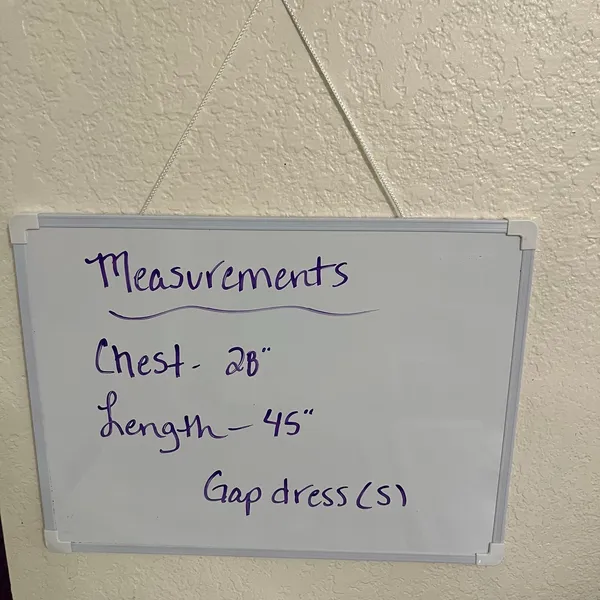 Measurements
Chest - 28"
Length - 45"
Gap dress (S)